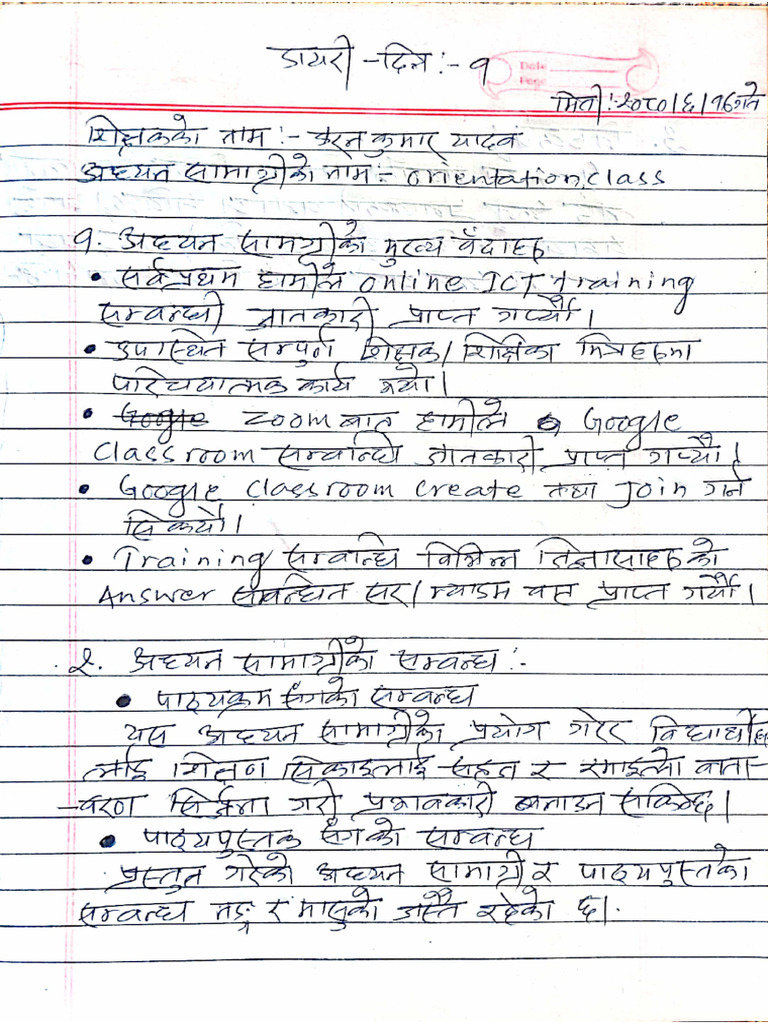 डायरी -दिन:- १
Date
Page
मिति: २०८०/६/१६गते
शिक्षकको नाम :- कुमार यादव
अध्यन सामाग्रीको नाम:- orientation class
१. अध्यन सामग्रीको मुख्य बुँदाहरु
• सर्वप्रथम हामीले online ICT training
सम्बन्धी जानकारी प्राप्त गर्यौ ।
• उपस्थित सम्पूर्ण शिक्षक/शिक्षिका मित्रहरुमा
परिचयात्मक कार्य भयो।
• Google zoom बाट हामीले Google
Classroom सम्बन्धि जानकारी प्राप्त गर्यौ ।
• Google classroom create तथा Join गर्न
सिक्यौ।
• Training सम्बन्धि विभिन्न जिज्ञासाहरुको
Answer सम्बन्धित सर/म्याडम बाट प्राप्त गर्यौ ।
२. अध्यन सामाग्रीको सम्बन्ध :-
• पाठ्यक्रम सँगको सम्बन्ध
यस अध्यन सामाग्रीको प्रयोग गरेर विद्यार्थीहरु
लाई शिक्षण सिकाइलाई सहज र रमाइलो वाता-
-वरण सिर्जना गरी प्रभावकारी बनाउन सकिन्छ।
• पाठ्यपुस्तक सँगको सम्बन्ध
प्रस्तुत गरेको अध्यन सामाग्री र पाठ्यपुस्तको
सम्बन्ध नङ्ग र मासुको जस्तै रहेको छ।